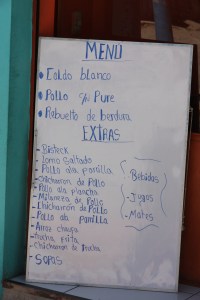 MENÚ
• Caldo blanco
• Pollo c/u Pure
• Rebuelto de berdura
EXTRAS
- Bisteck
- Lomo saltado
- Pollo ala parrilla
- Chicharron de Pollo
- Pollo ala plancha
- Milaneza de Pollo
- Chicharron de Pollo
- Pollo ala parrilla
- Arroz chaufa
- trucha frita
- Chicharron de trucha
- SOPAS
Bebidas
- Jugos
- Mates